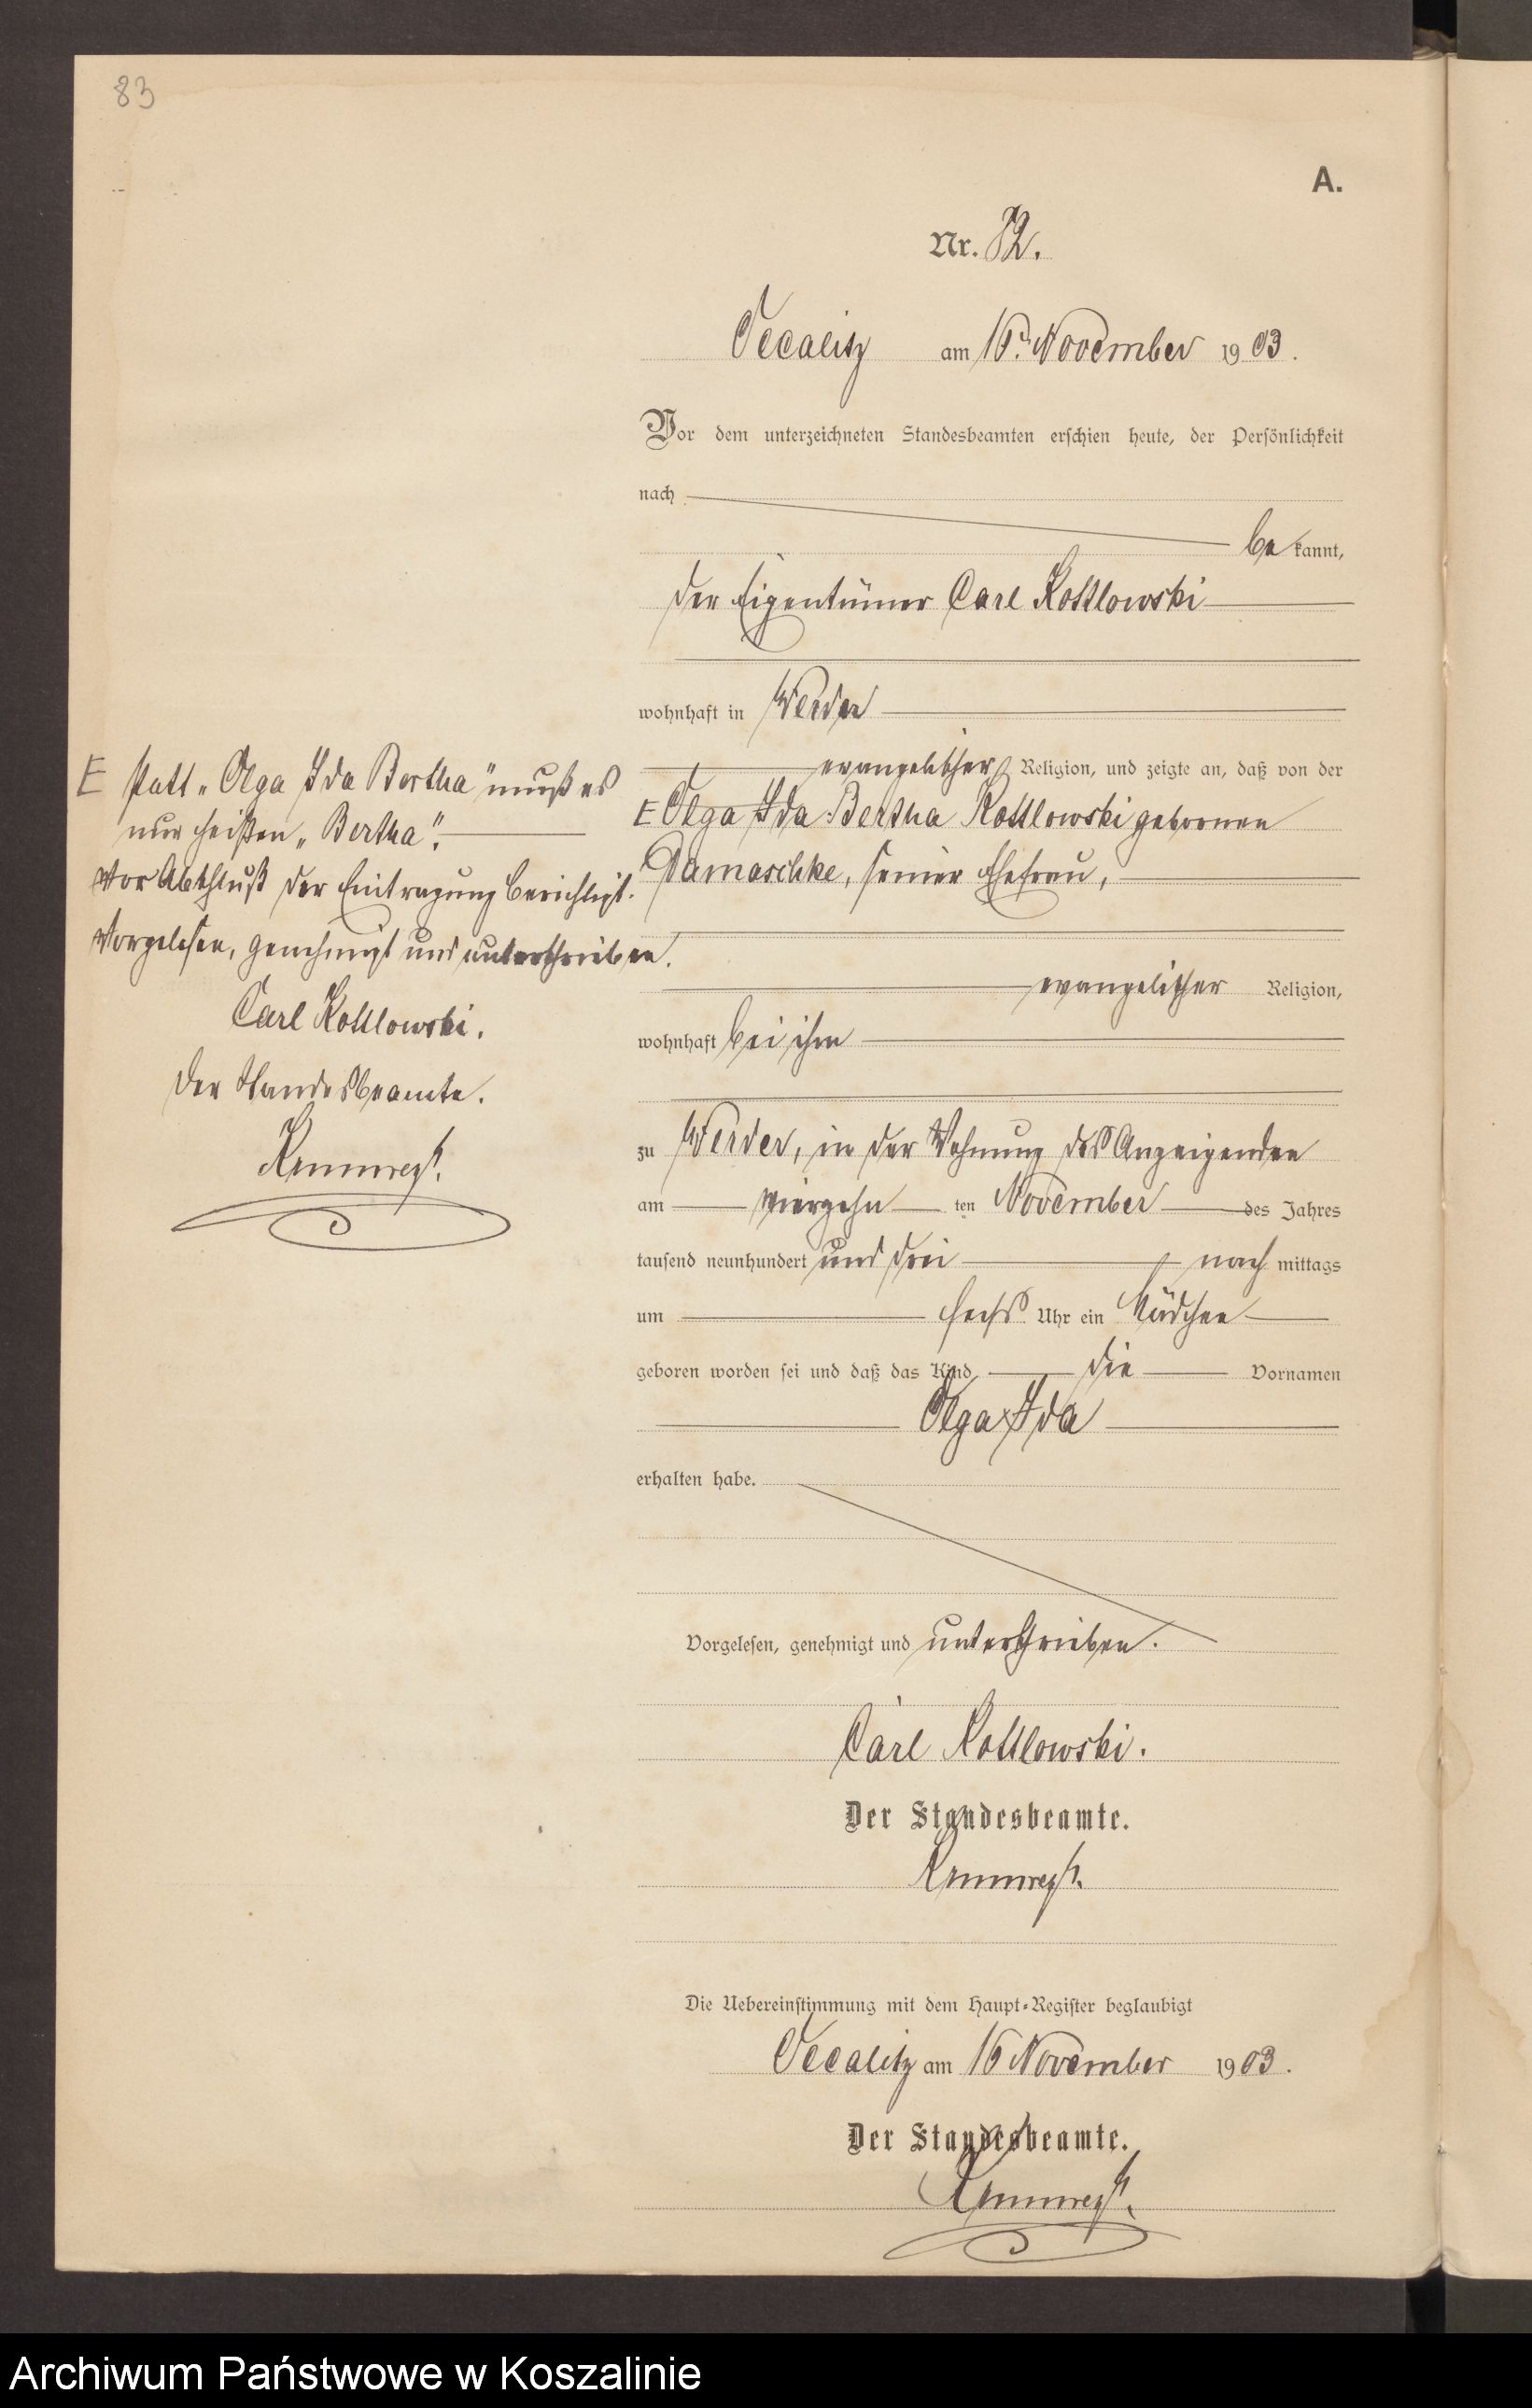 83
A.
Nr. 82.
Veealitz am 16. November 1903.
Vor dem unterzeichneten Standesbeamten erschien heute, der Persönlichkeit
nach
bekannt,
der Eigentümer Carl Kottlowski
wohnhaft in Werder
evangelischer Religion, und zeigte an, daß von der
E Olga Ida Bertha Kottlowski gebornen
Damaschke, seiner Ehefrau,
evangelischer Religion,
wohnhaft bei ihm
zu Werder, in der Wohnung des Anzeigenden
am vierzehn ten November des Jahres
tausend neunhundert und drei nach mittags
um sechs Uhr ein Mädchen
geboren worden sei und daß das Kind die Vornamen
Olga Ida
erhalten habe.
Vorgelesen, genehmigt und unterschrieben.
Carl Kottlowski.
Der Standesbeamte.
Die Uebereinstimmung mit dem Haupt-Register beglaubigt
Veealitz am 16 November 1903.
Der Standesbeamte.
E statt „Olga Ida Bertha" muß es
nur heißen „Bertha".
Vor Abschluß der Eintragung berichtigt.
Vorgelesen, genehmigt und unterschrieben.
Carl Kottlowski.
Der Standesbeamte.
Archiwum Państwowe w Koszalinie